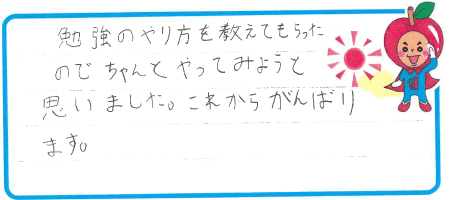 勉強のやり方を教えてもらった
のでちゃんとやってみようと
思いました。これからがんばり
ます。